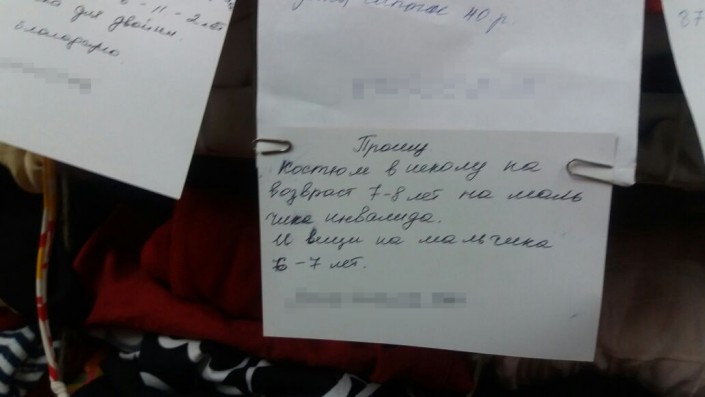 для двойни.
благодарю.
40 р
87
Прошу.
костюм в школу на
возвраст 7-8 лет на маль
чика инвалида.
И вещи на мальчика
6-7 лет.